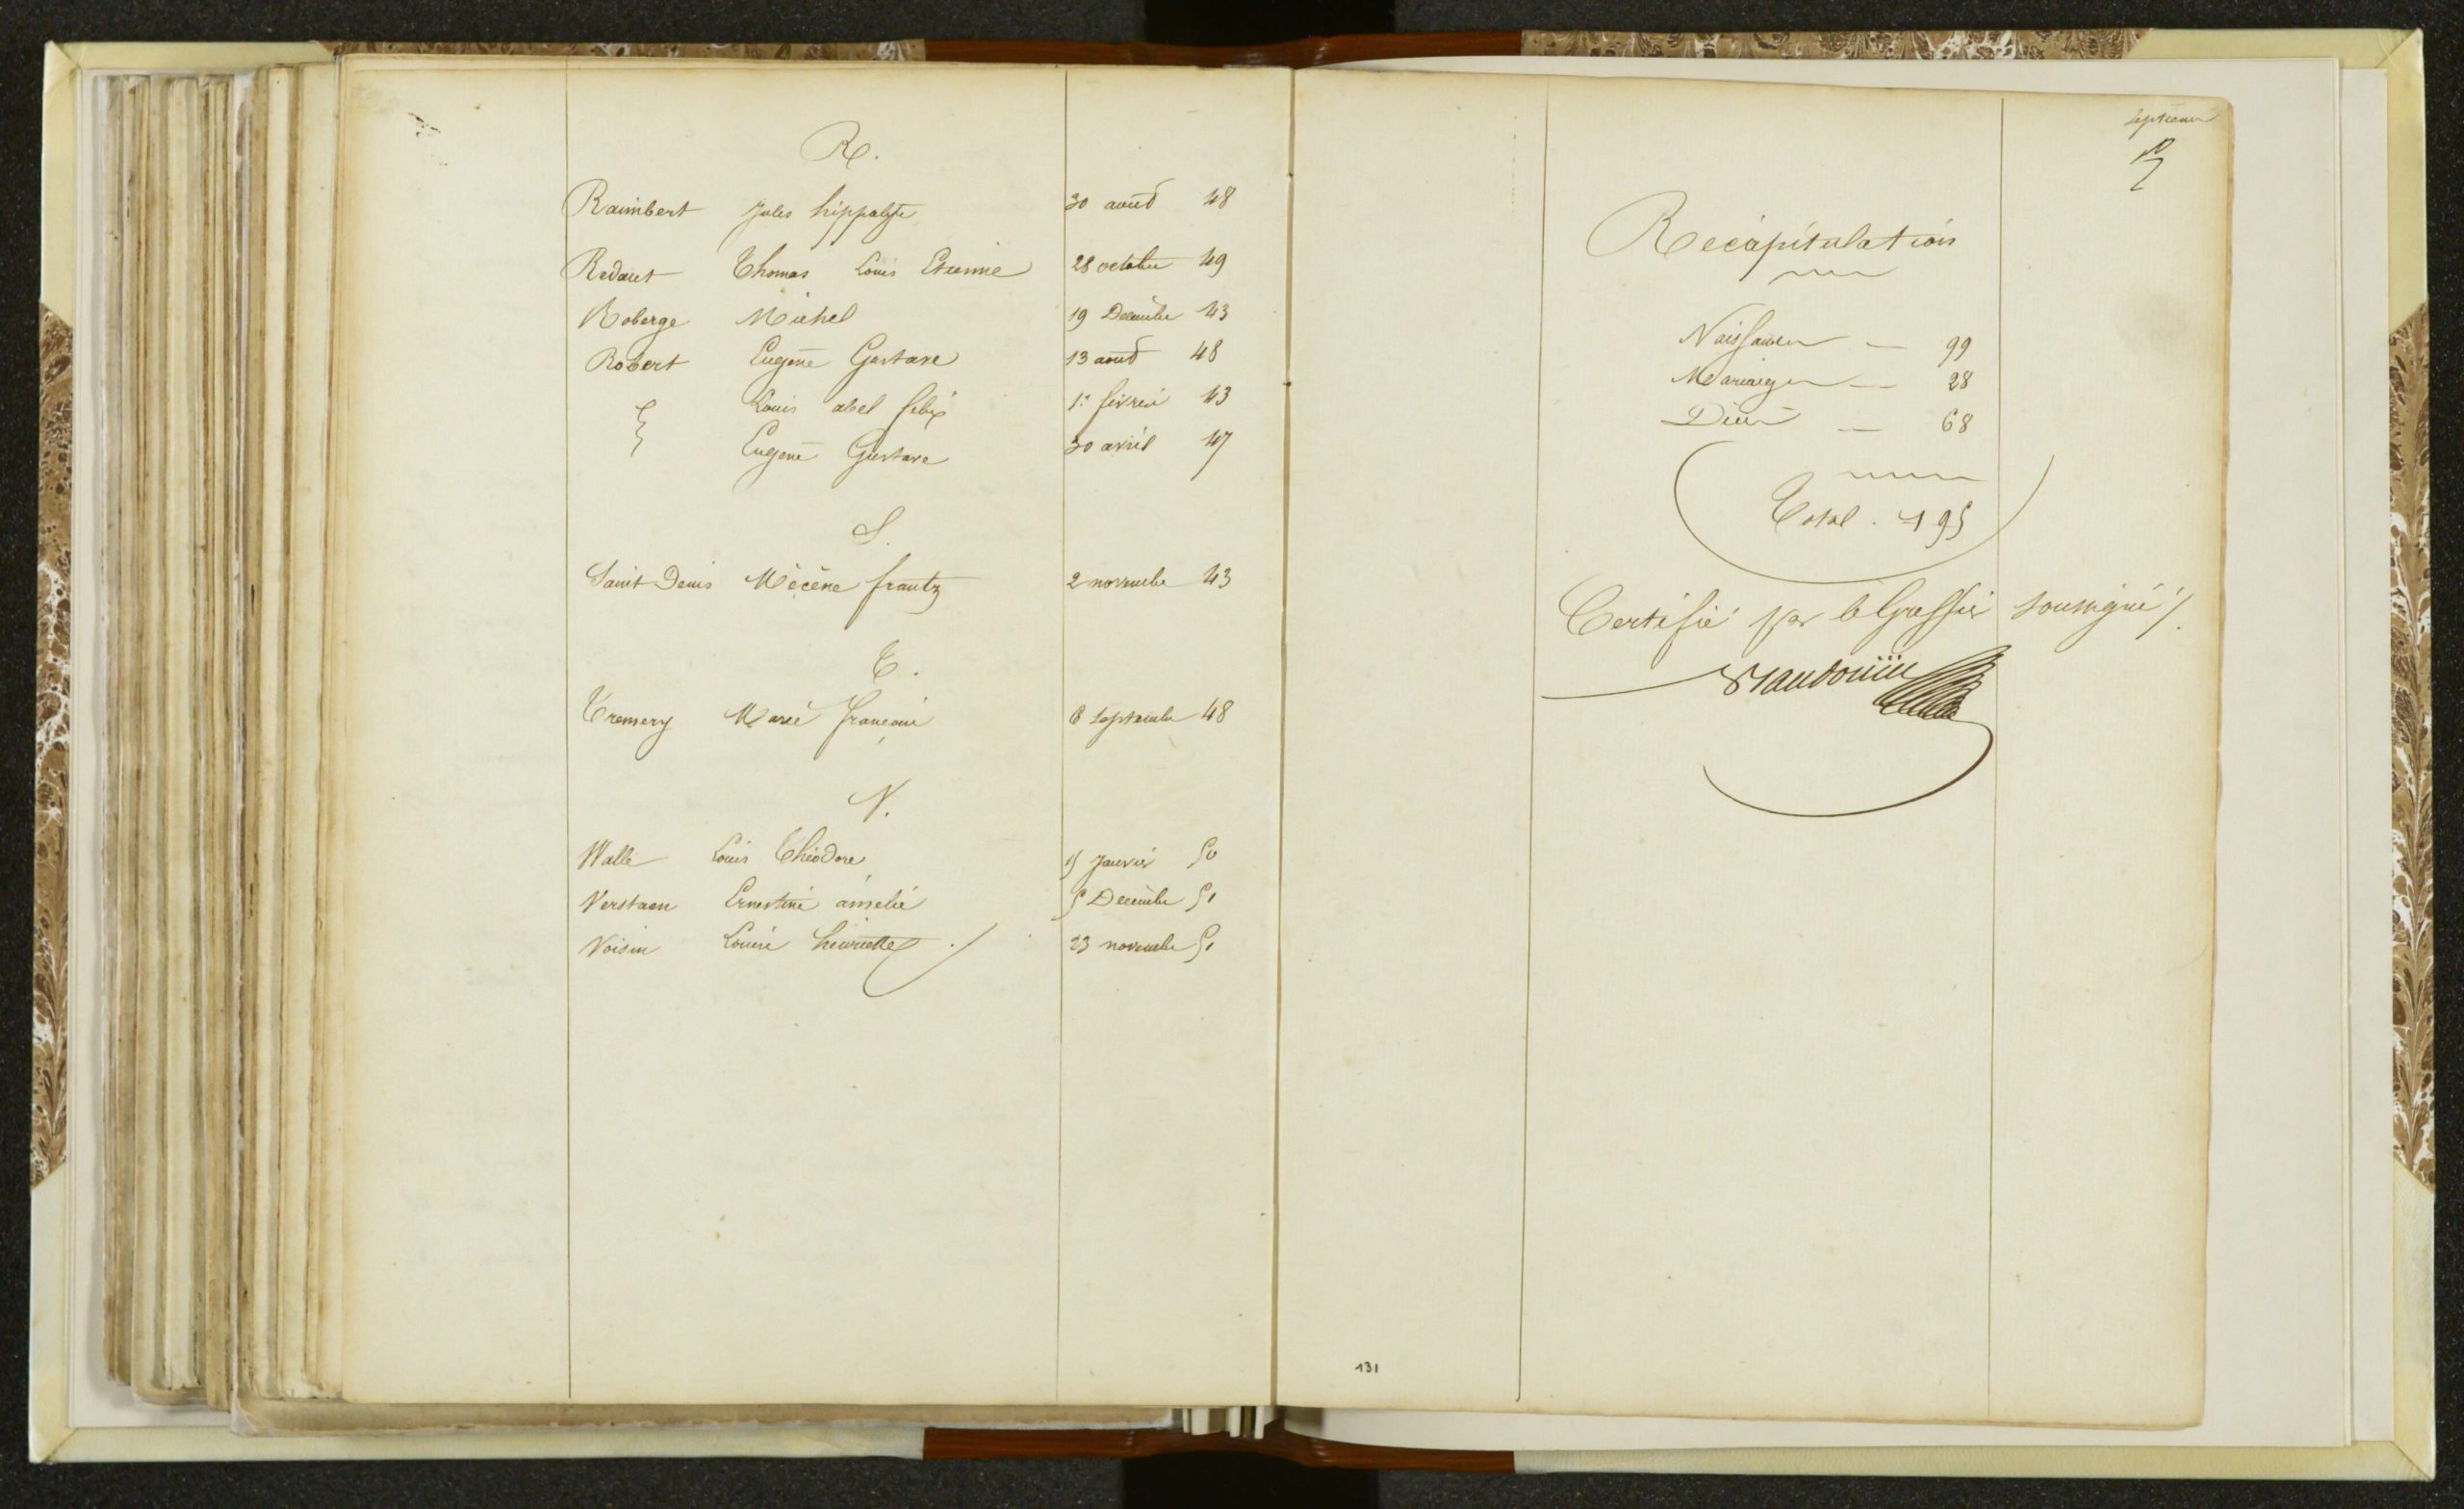 R.
Raimbert Jules hippolyte 30 août 48
Redaut Thomas Louis Etienne 28 octobre 49
Roberge Michel 19 Décembre 43
Robert Eugène Gustave 13 août 48
Louis abel felix 1er février 43
Eugène Gustave 30 avril 47
S.
Saint Denis Mécène frantz 2 novembre 43
T.
Tremery Marie françoise 6 Septembre 48
V.
Walle Louis Théodore 15 Janvier 50
Verstaen Ernestine amélie 5 Décembre 51
Voisin Louise henriette ./ 23 novembre 51
Septième
Recapitulation
Naissances — 99
Mariages — 28
Décès — 68
Total . 195
Certifié par le Greffier soussigné ./.
131